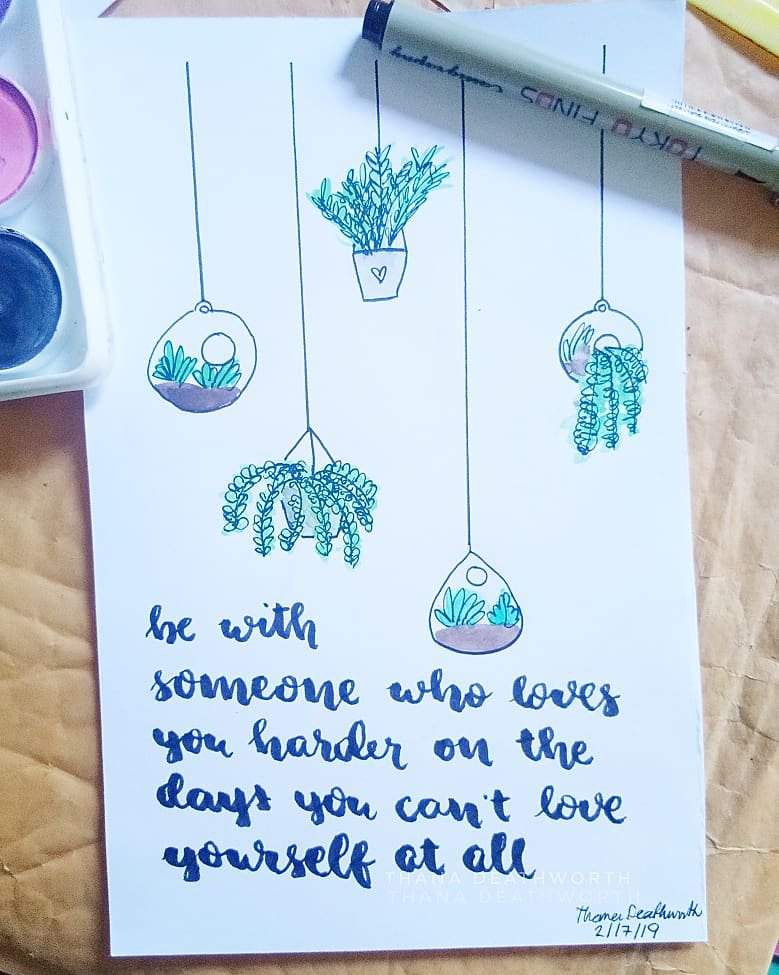 TOKYO FINDS
be with
someone who loves
you harder on the
days you can't love
yourself at all
THANA DEATHWORTH
THANA DEATHWORTH
Thana Deathworth
2/17/19